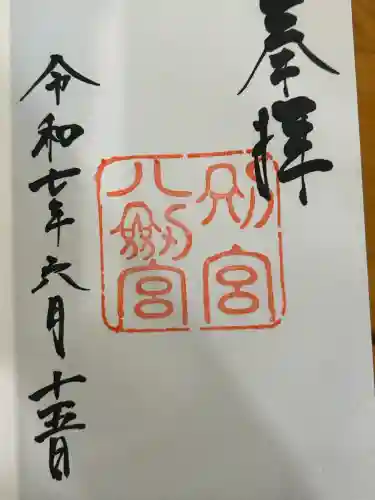 奉拝
別宮
八剱宮
令和七年六月十五日